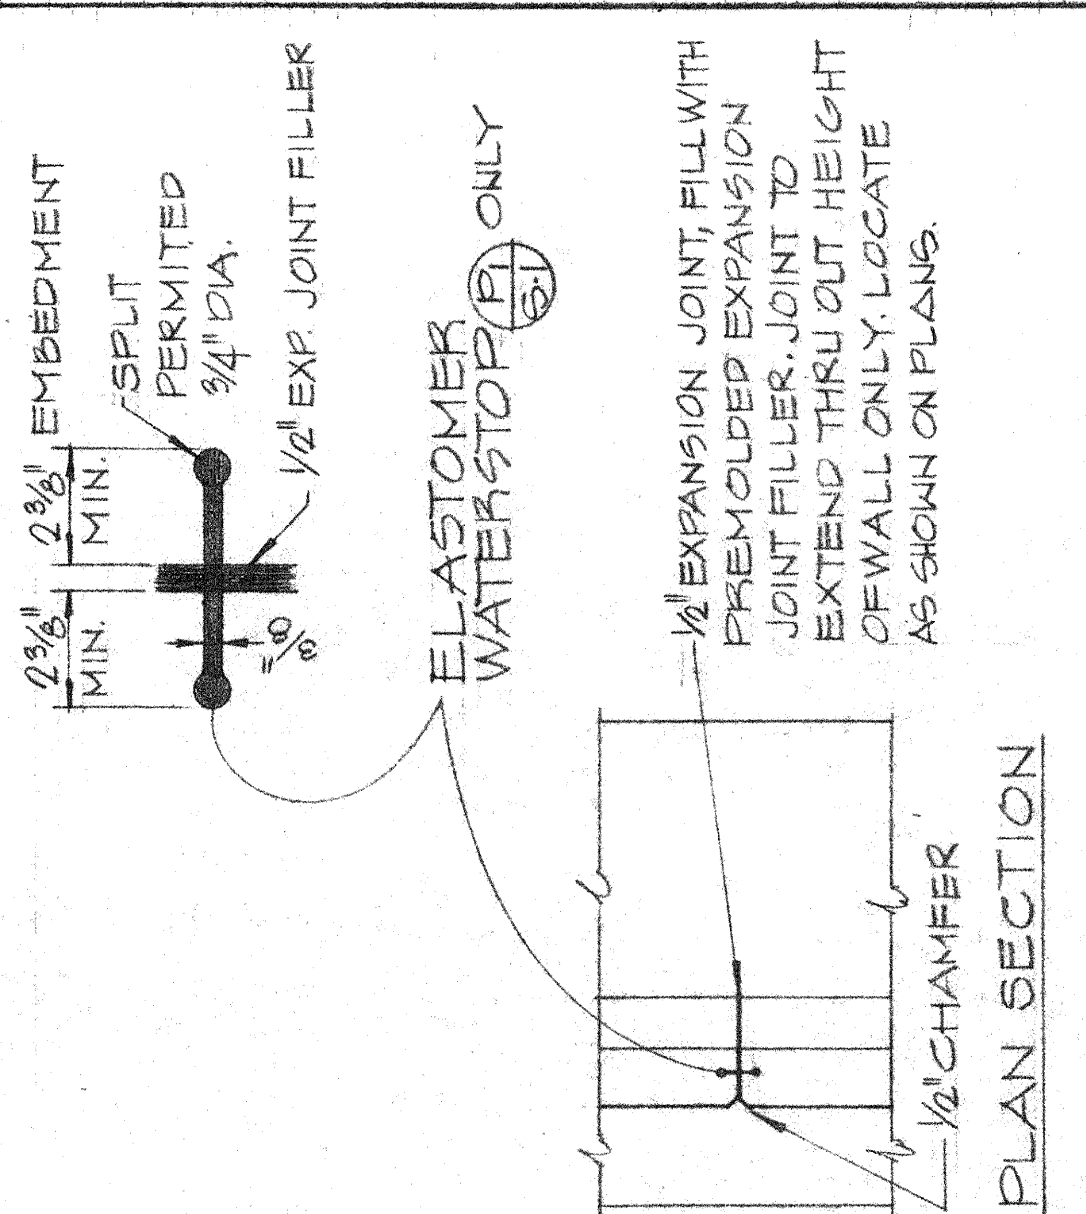 2 3/8" 2 3/8" EMBEDMENT
MIN. MIN.
SPLIT
PERMITED
3/4" DIA.
3/8"
1/2" EXP. JOINT FILLER
ELASTOMER
WATERSTOP P1 ONLY
S-1
1/2" EXPANSION JOINT, FILL WITH
PREMOLDED EXPANSION
JOINT FILLER. JOINT TO
EXTEND THRU OUT HEIGHT
OF WALL ONLY. LOCATE
AS SHOWN ON PLANS.
1/2" CHAMFER
PLAN SECTION